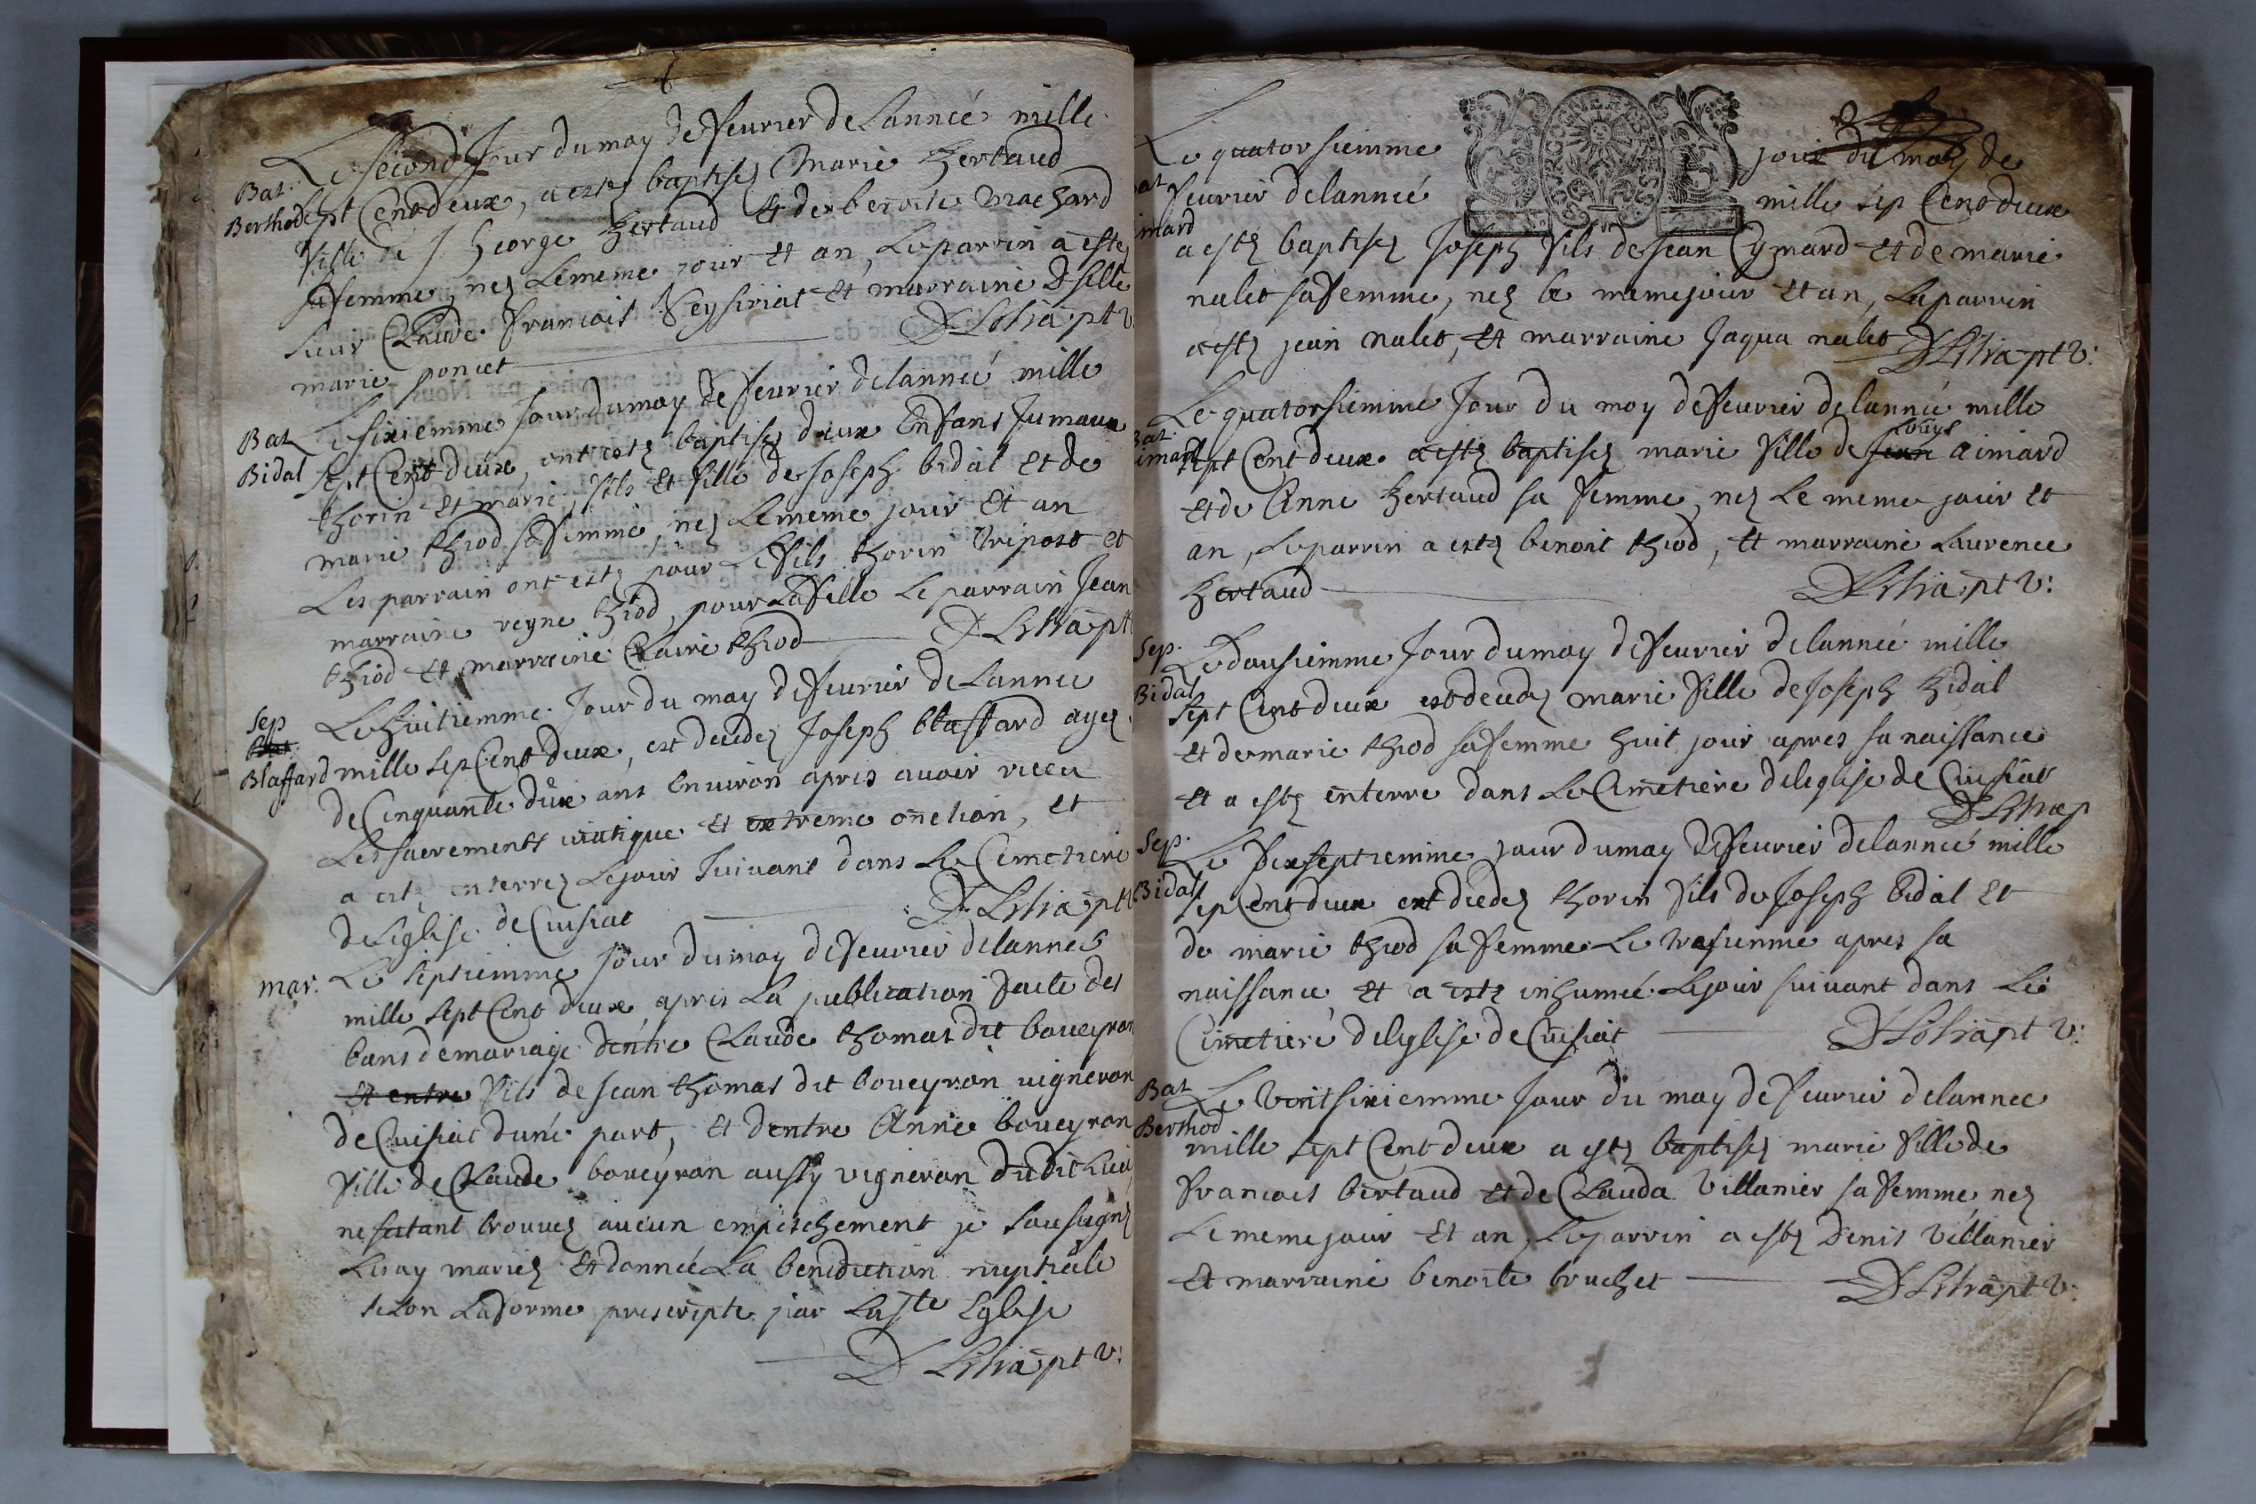 Bat.
Berthod
Le second Jour du moy de feurier de Lanneé mille
sept Cent deux, a estez baptisez Marie Bertaud
fille de J George Bertaud et de benoite machard
sa femme, nez Lememe jour et an, Le parrin a estez
sieur Claude francois Veysiriat et marraine Dselle
marie poncet D Lilia pt v
Bat
Bidal
Le sixiemme Jour du moy de feurier de lanneé mille
sept Cent deux, ont estez baptisez deux Enfans Jumaux
thorin et marie, fils et fille de Joseph bidal et de
marie thiod sa femme, nez Lememe jour et an
Les parrain ont estez pour Le fils thorin Tripost et
marraine reyne thiod, pour La fille Le parrain Jean
thiod et marraine Claire thiod D Lilia pt
Sep
Blaffard
Le huitiemme Jour du moy de feurier de Lannee
mille sept Cent deux, est decedez Joseph blaffard agez
de Cinquante deux ans Enuiron apres auoir receu
Les sacrements uiatique et extreme onction, et
a este enterrez Lejour Suiuant dans Le Cemetiere
de Leglise de Cuisiat D Lilia pt
mar.
Le septiemme Jour du moy de feurier de lanneé
mille sept Cent deux, apres La publication facte des
bans de mariage dentre Claude thomas dit boueyron
et entre fils de Jean thomas dit boueyron uigneron
de Cuisiat dune part, et dentre Anne boueyron
fille de Claude boueyron aussy vigneron dudit Lieu
ne sestant trouuez aucun empeschement je Soussignez
Les ay mariez et donneé La benediction nuptiale
selon La forme prescripte par La ste Eglise
D Lilia pt v:
Le quatorsiemme jour du moy de
feurier de lanneé mille sep Cent deux
a estz baptisez Joseph fils de Jean Eymard et de marie
nalet sa femme, nez le meme jour et an, Le parrin
a estz jean nalet, et marraine Jaqua nalet D Lilia pt v:
Bat
imard
Le quatorsiemme Jour du moy de feurier de lanneé mille
Louys
sept Cent deux a estz baptisez marie fille de Jean aimard
et de Anne Bertaud sa femme, nez Le meme jour et
an, Le parrin a estz benoit thiod, et marraine Laurence
Bertaud D Lilia pt v:
Sep.
Bidal
Le dousiemme Jour du moy de feurier de lanneé mille
sept Cent deux est decedez marie fille de Joseph bidal
et de marie thiod sa femme huit jour apres sa naissance
et a estz enterre dans Le Cimetiere de leglise de Cuisiat
D Lilia p
Sep.
Bidal
Le dixseptiemme jour du moy de feurier de lanneé mille
sep Cent deux est decedez thorin fils de Joseph bidal et
de marie thiod sa femme Le apres sa
naissance et a este inhumeé Lejour suiuant dans Le
Cimetiere de leglise de Cuisiat D Lilia pt v:
Bat
Berthod
Le vintsixiemme Jour du moy de feurier de lannee
mille sept Cent deux a estz baptisez marie fille de
francois bertaud et de Clauda Villanier sa femme, nez
Le meme jour et an, Le parrin a estz Denis Villanier
et marraine benoite brochet D Lilia pt v: